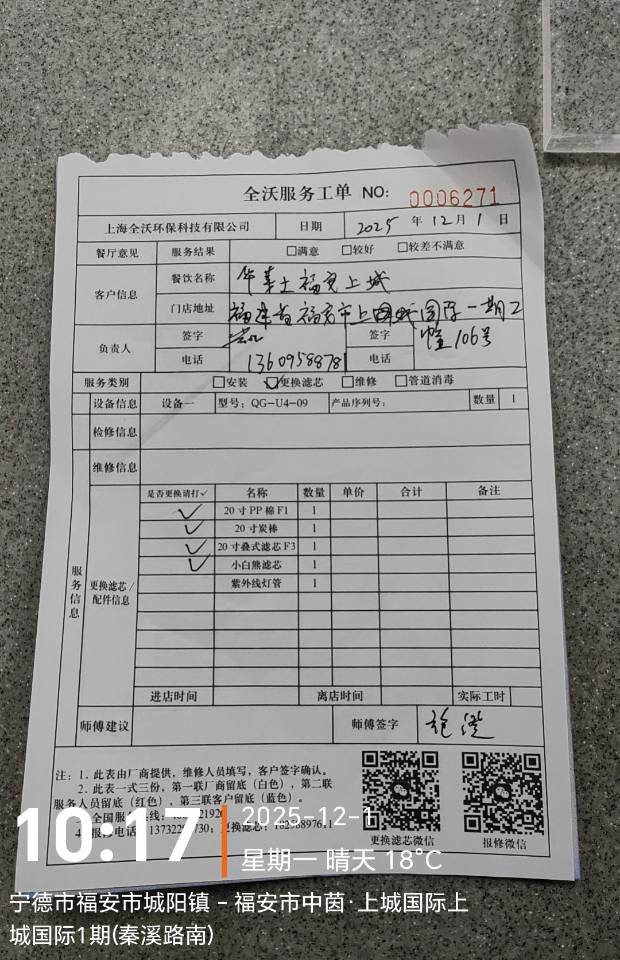 全沃服务工单 NO: 0006271
上海全沃环保科技有限公司 日期 2025 年 12 月 1 日
餐厅意见 服务结果 □满意 □较好 □较差不满意
客户信息 餐饮名称 华莱士福安上城
门店地址 福建省福安市上城国际一期2
幢106号
负责人 签字 签字
电话 13609588781 电话
服务类别 □安装 ☑更换滤芯 □维修 □管道消毒
设备信息 设备一 型号: QG-U4-09 产品序列号: 数量 1
检修信息
维修信息
服务信息
更换滤芯/配件信息
是否更换请打✓ 名称 数量 单价 合计 备注
✓ 20寸PP棉F1 1
✓ 20寸炭棒 1
✓ 20寸叠式滤芯F3 1
✓ 小白熊滤芯 1
紫外线灯管 1
进店时间 离店时间 实际工时
师傅建议 师傅签字
注: 1. 此表由厂商提供, 维修人员填写, 客户签字确认。
2. 此表一式三份, 第一联厂商留底(白色), 第二联
服务人员留底(红色), 第三联客户留底(蓝色)。
更换滤芯微信 报修微信
10:17
2025-12-1
星期一 晴天 18℃
宁德市福安市城阳镇 - 福安市中茵·上城国际上
城国际1期(秦溪路南)